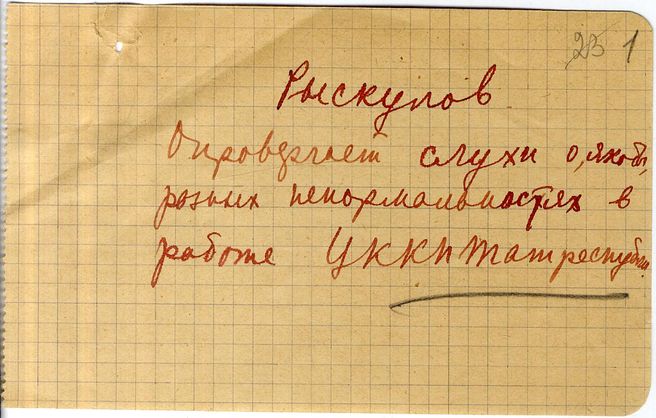 23 1
Рыскулов
Опровергает слухи о, якобы,
разных ненормальностях в
работе ЦККП Татреспублики